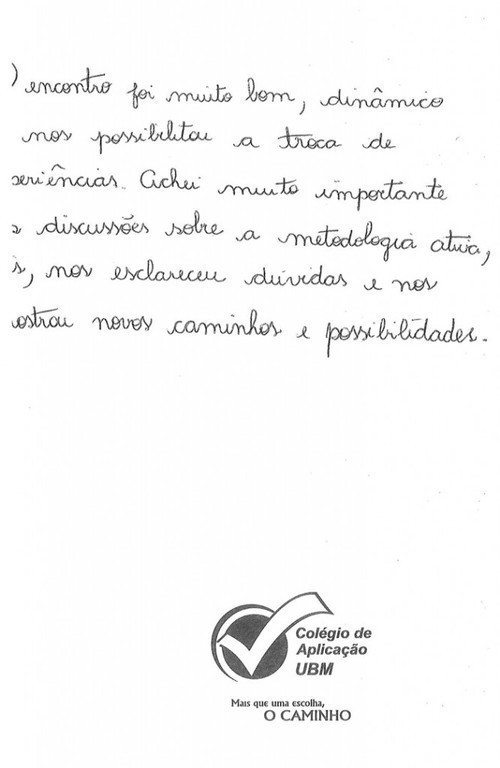 ) encontro foi muito bom, dinâmico
nos possibilitou a troca de
periências. Achei muito importante
discussões sobre a metodologia ativa,
s, nos esclareceu dúvidas e nos
ostrou novos caminhos e possibilidades.
Colégio de
Aplicação
UBM
Mais que uma escolha,
O CAMINHO